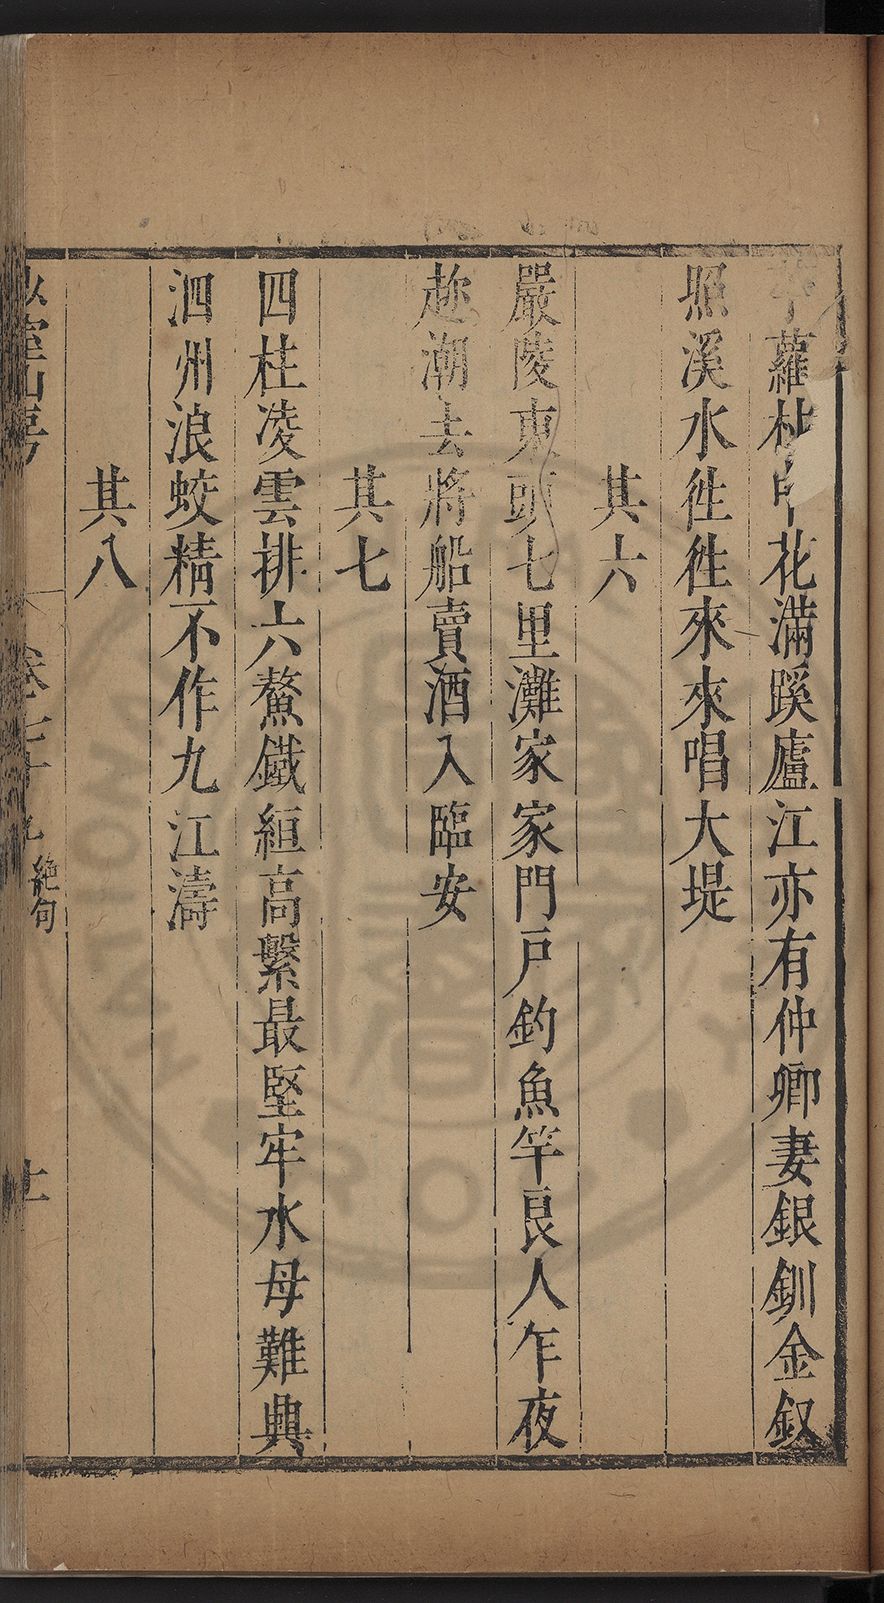 蘿杜中花滿蹊廬江亦有仲卿妻銀釧金釵
照溪水徃徃來來唱大堤
其六
嚴陵東頭七里灘家家門戸釣魚竿良人乍夜
趂潮去將船賣酒入臨安
其七
四柱凌雲排六鰲鐵絙高繫最堅牢水母難興
泗州浪蛟精不作九江濤
其八
少室山房
卷七十九
絕句
十一